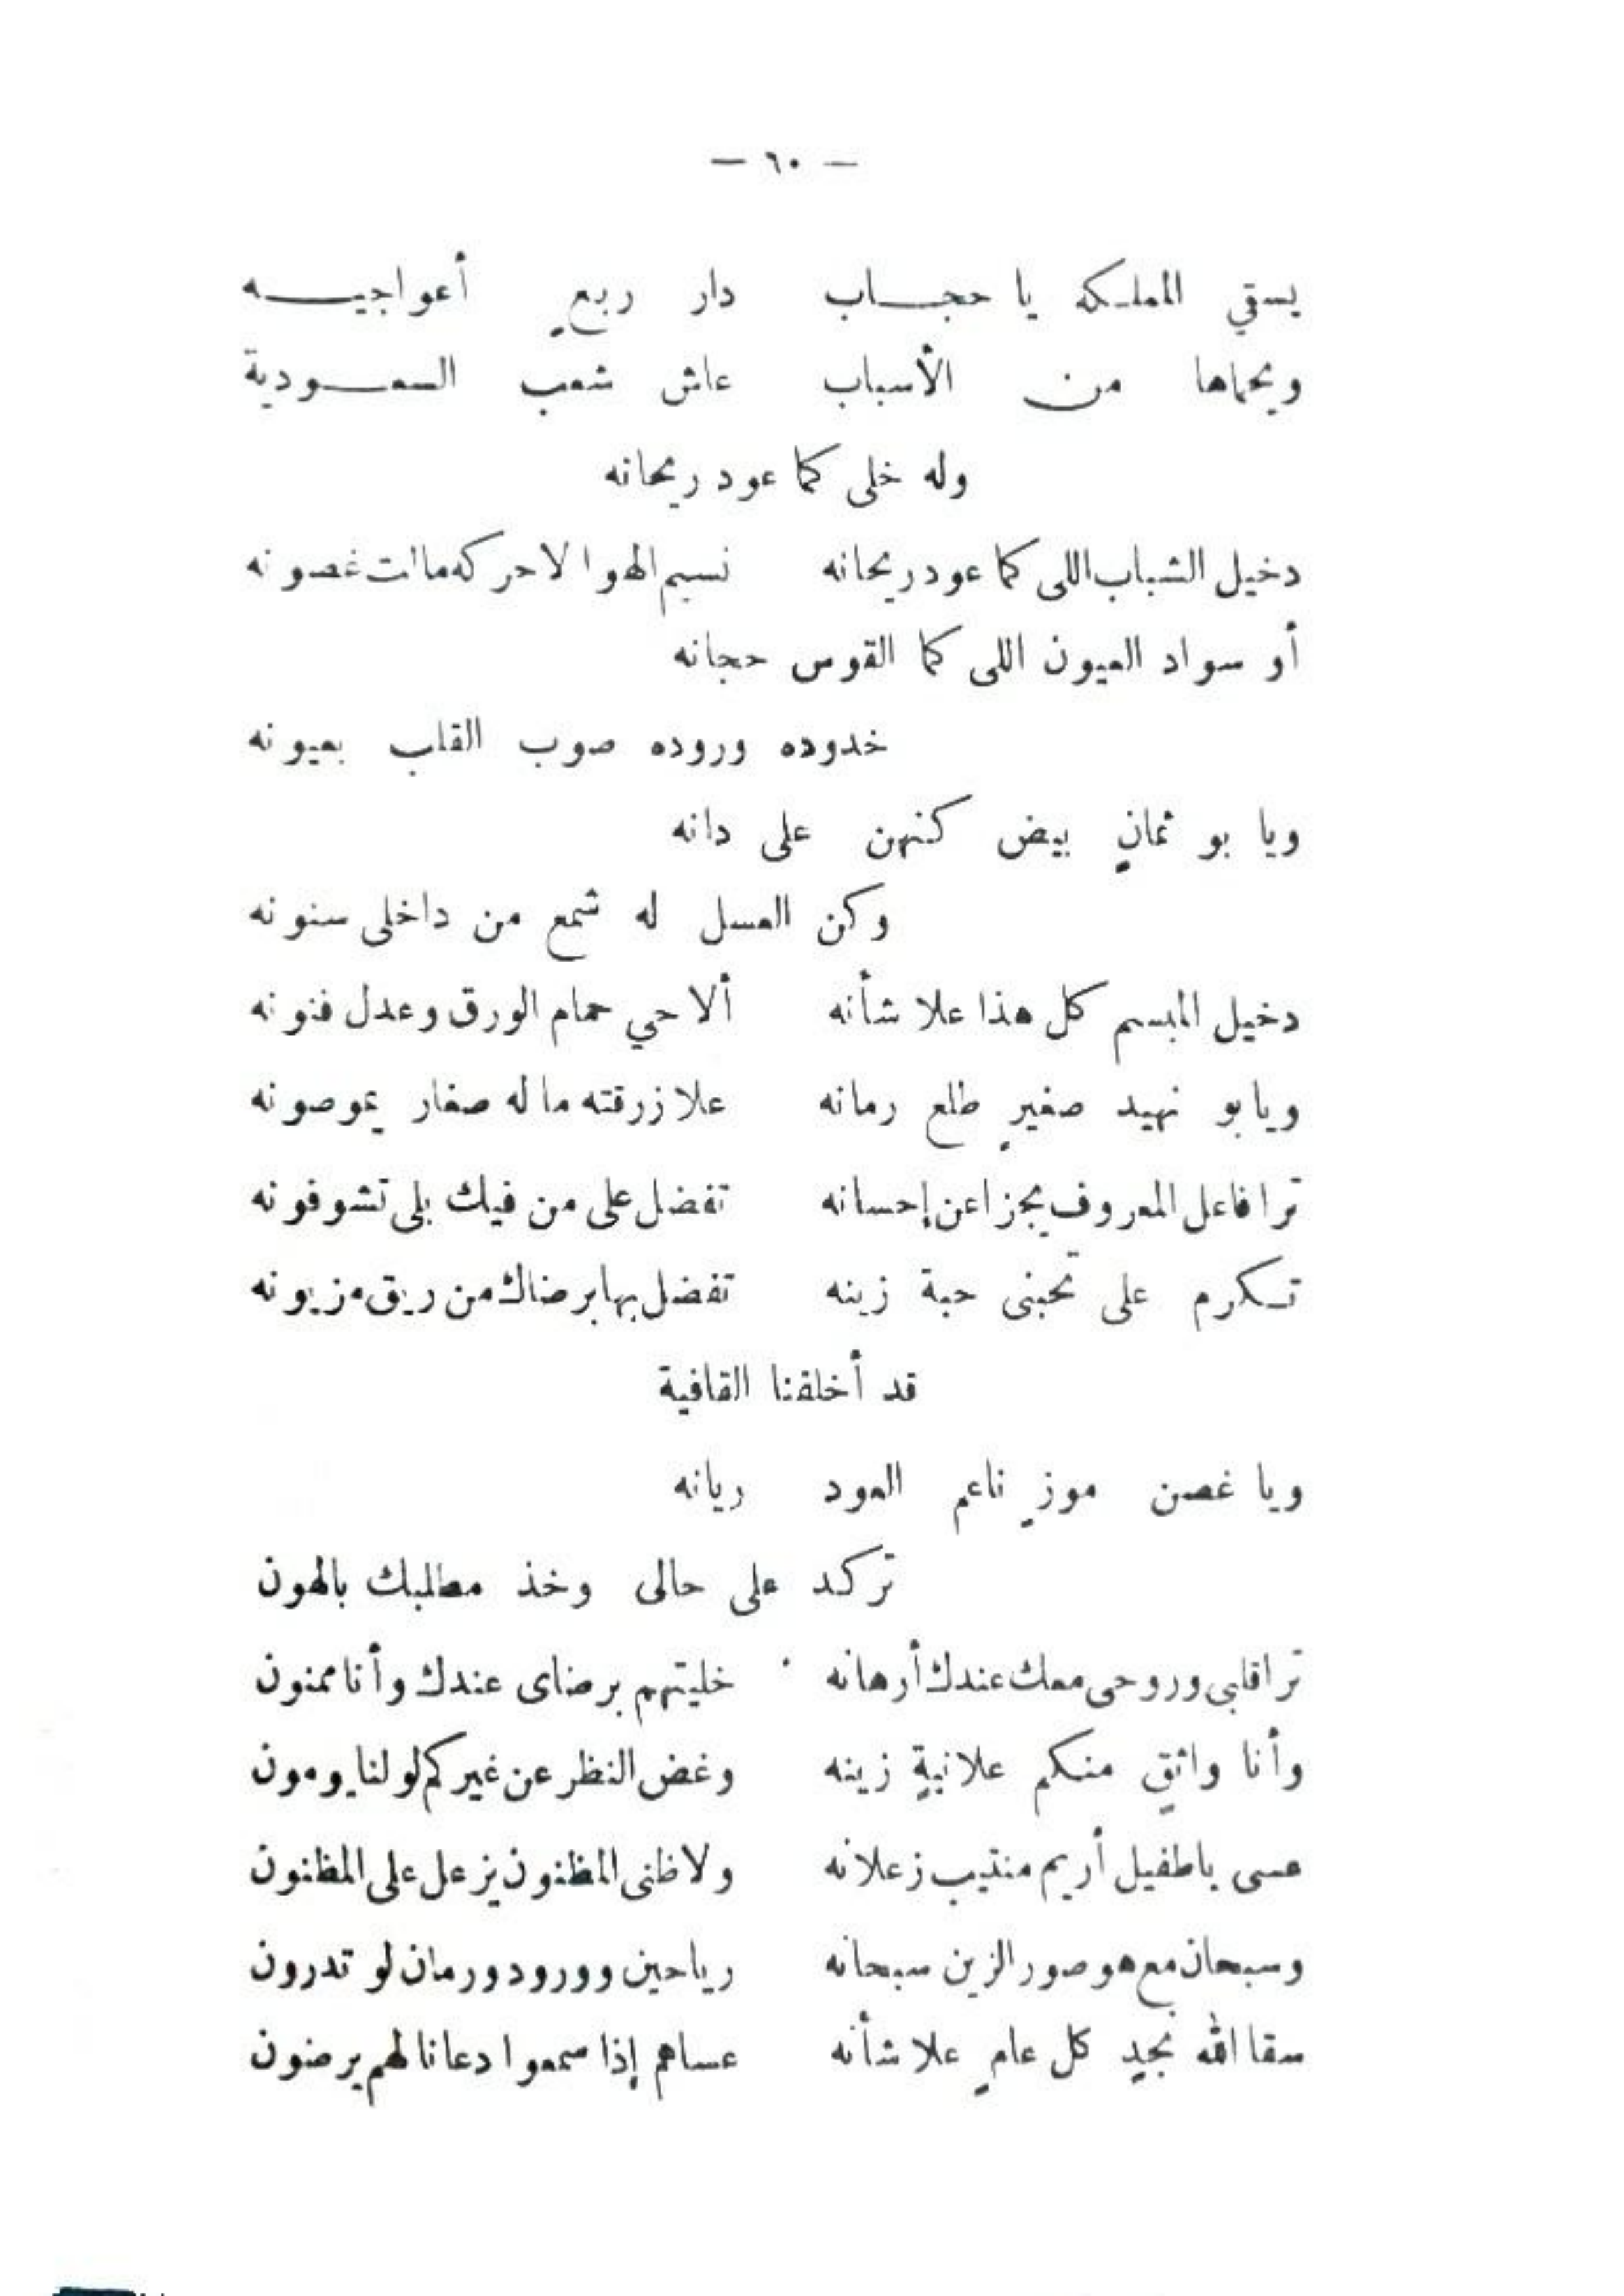 — ٦٠ —
يسقي المملكه يا حجـــاب دار ربعٍ أعواجيـــه
ويحماها من الأسباب عاش شعب الســعودية
وله خلى كما عود ريحانه
دخيل الشباب اللى كما عود ريحانه نسيم الهوا لا حركه مالت غصونه
أو سواد العيون اللى كما القوس حجانه
خدوده وروده صوب القلب بعيونه
ويا بو ثمانٍ بيض كنهن على دانه
وكن العسل له شمع من داخلى سنونه
دخيل المبسم كل هذا علا شأنه ألا حي حمام الورق وعدل فنونه
ويا بو نهيد صغيرٍ طلع رمانه علا زرقته ما له صغار يموصونه
ترا فاعل المعروف يجزا عن إحسانه تفضل على من فيك بلى تشوفونه
تـكرم على تحبنى حبة زينه تفضل بها برضاك من ريق مزيونه
قد أخلقنا القافية
ويا غصن موزٍ ناعم العود ريانه
تركد على حالى وخذ مطلبك بالهون
ترا قلبى وروحى معك عندك أرهانه خليتهم برضاى عندك وأنا ممنون
وأنا واثقٍ منكم علانيةٍ زينه وغض النظر عن غيركم لو لنا يومون
عسى ياطفيل أريم منتيب زعلانه ولا ظنى المظنون يزعل على المظنون
وسبحان مع هو صور الزين سبحانه رياحين وورود ورمان لو تدرون
سقا الله نجدٍ كل عامٍ علا شأنه عساهم إذا سمعوا دعانا لهم يرضون